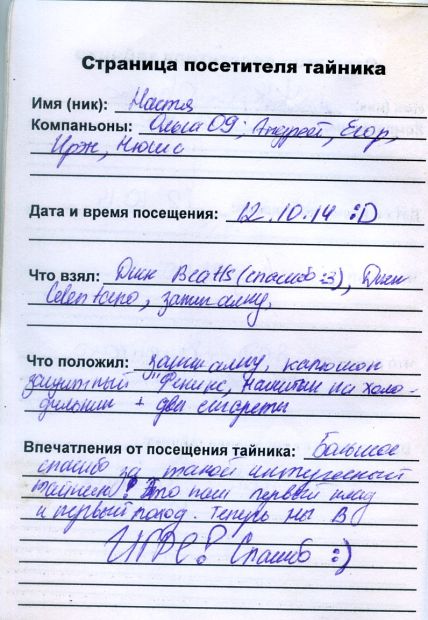 Страница посетителя тайника
Имя (ник): Настя
Компаньоны: Ольга 09; Андрей, Егор,
Ирэн, Нюшс
Дата и время посещения: 12.10.14 :D
Что взял: Диск Beatls (спасибо :3), Диск
Celentano, зажигалку.
Что положил: зажигалку, капюшон
защитный "Феникс, магнитик на холо-
дильник + две сигареты
Впечатления от посещения тайника: Большое
спасибо за такой интересный
тайник! Это наш первый клад
и первый поход. Теперь мы В
ИГРЕ! Спасибо :)